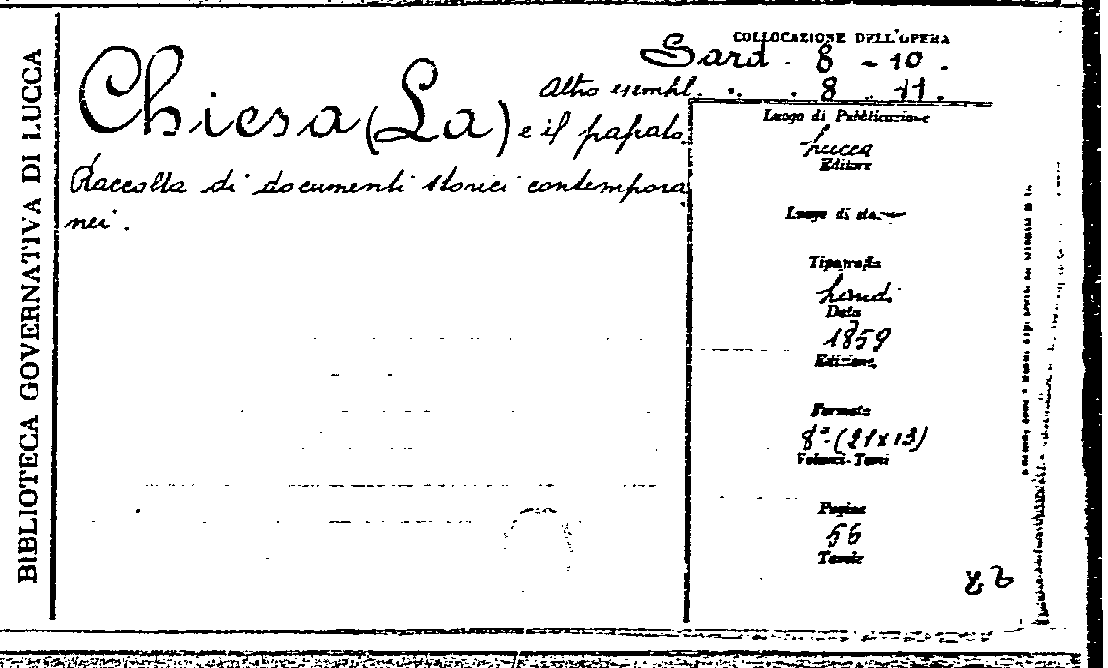 BIBLIOTECA GOVERNATIVA DI LUCCA
COLLOCAZIONE DELL'OPERA
Sard. 8 - 10.
Altro esempl. .. . 8 .. 11.
Chiesa (La) e il papato.
Raccolta di documenti storici contempora
nei.
Luogo di Pubblicazione
Lucca
Editore
Luogo di
Tipografia
Landi
Data
1859
Edizione
Formato
8º (21x13)
Volumi-Tomi
Pagine
56
Tavole